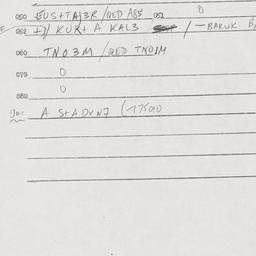 050 EUS+TAJ3R /QED AB5 052 0
052 +)/ KUR+ A KAL3 / - BARUK B
060 TNO3M /QED TNO1M
070 0
080 0
90/ A S+ADVN7 (-17500